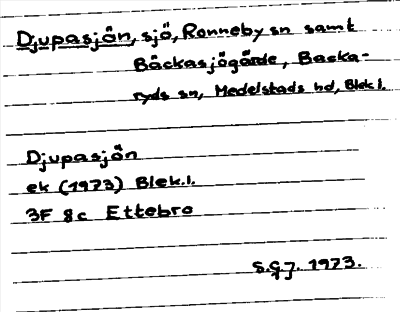 Djupasjön, sjö, Ronneby sn samt
Bäckasjögärde, Backa-
ryds sn, Medelstads hd, Blek.l.
Djupasjön
ek (1973) Blek.l.
3F 8c Ettebro
S.G.J. 1973.